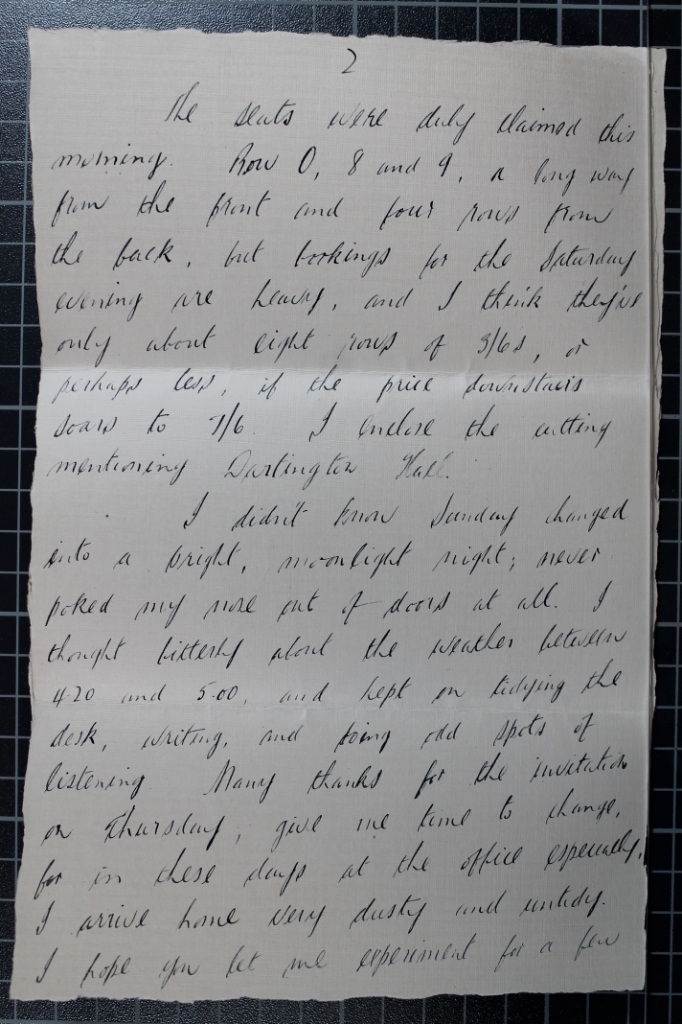 2
The seats were duly claimed this
morning. Row O, 8 and 9, a long way
from the front and four rows from
the back, but bookings for the Saturday
evening are heavy, and I think they've
only about eight rows of 3/6s, or
perhaps less, if the price downstairs
soars to 7/6. I enclose the cutting
mentioning Dartington Hall.
I didn't know Sunday changed
into a bright, moonlight night; never
poked my nose out of doors at all. I
thought bitterly about the weather between
4.20 and 5.00, and kept on tidying the
desk, writing, and doing odd spots of
listening. Many thanks for the invitation
on Thursday; give me time to change,
for in these days at the office especially,
I arrive home very dusty and untidy.
I hope you let me experiment for a few